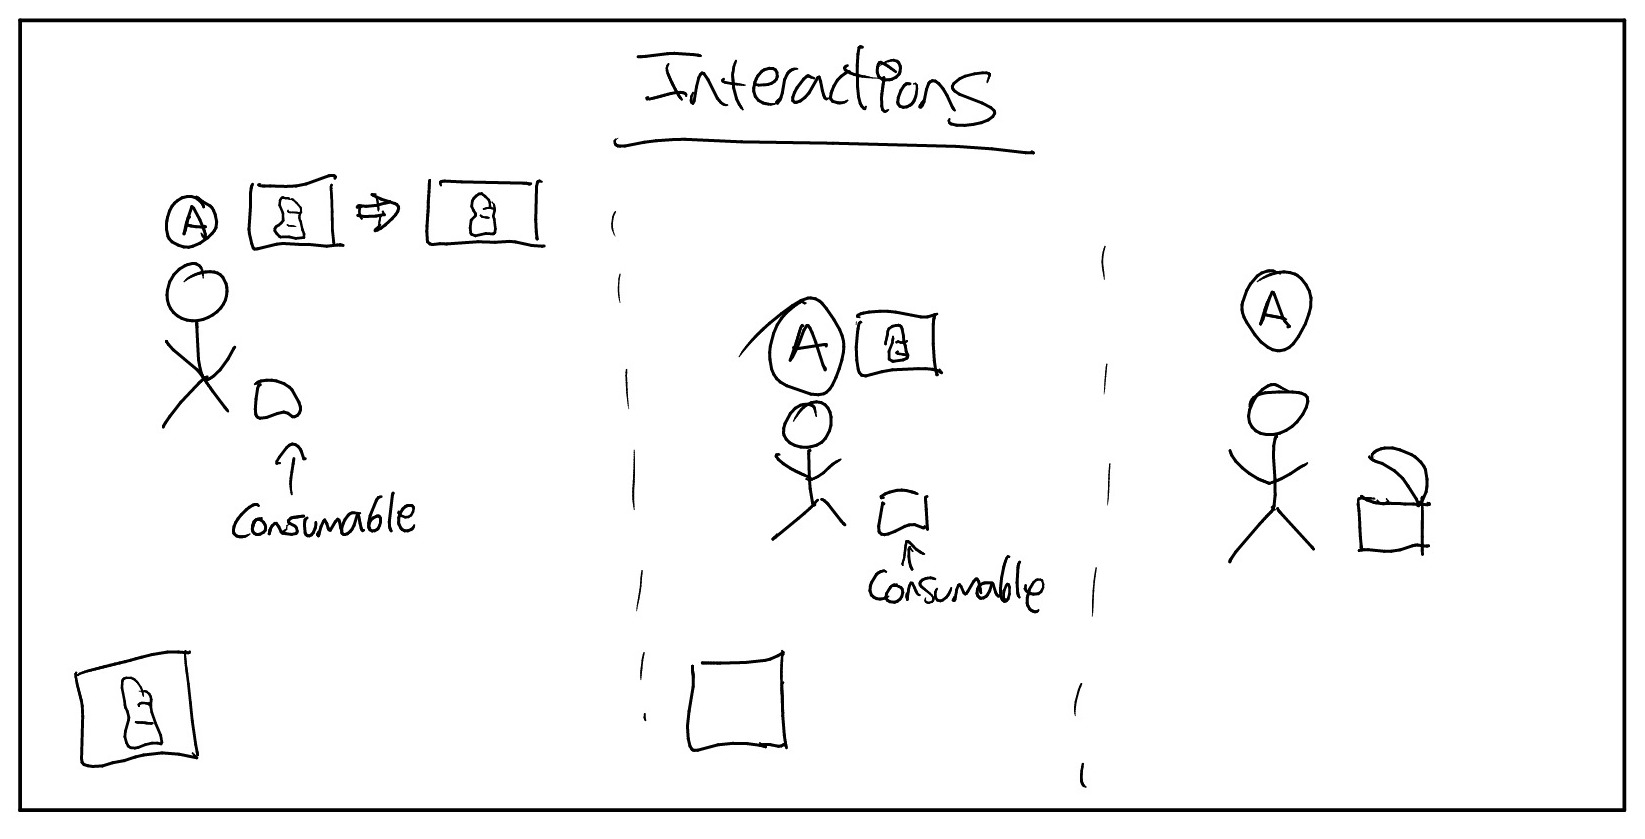 Interactions
A
Consumable
A
Consumable
A